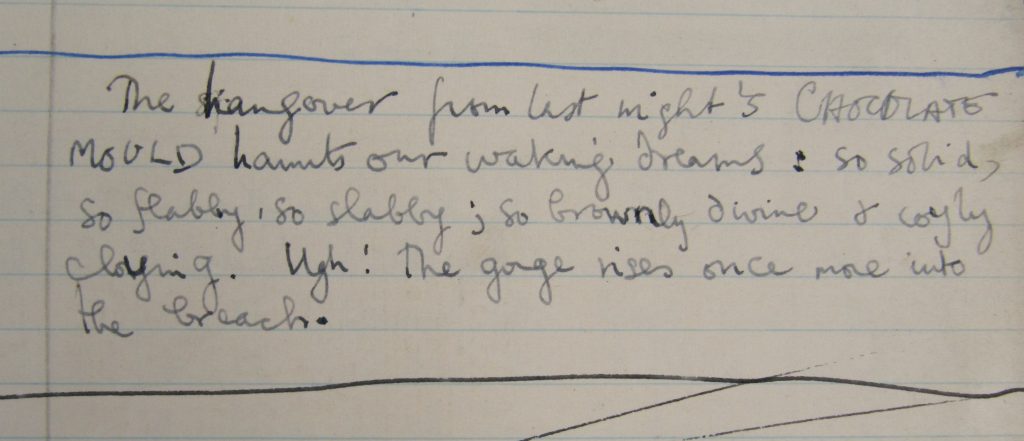 The hangover from last night's CHOCOLATE
MOULD haunts our waking dreams : so solid,
so flabby, so slabby ; so brownly divine & coyly
cloying. Ugh! The gorge rises once more into
the breach.